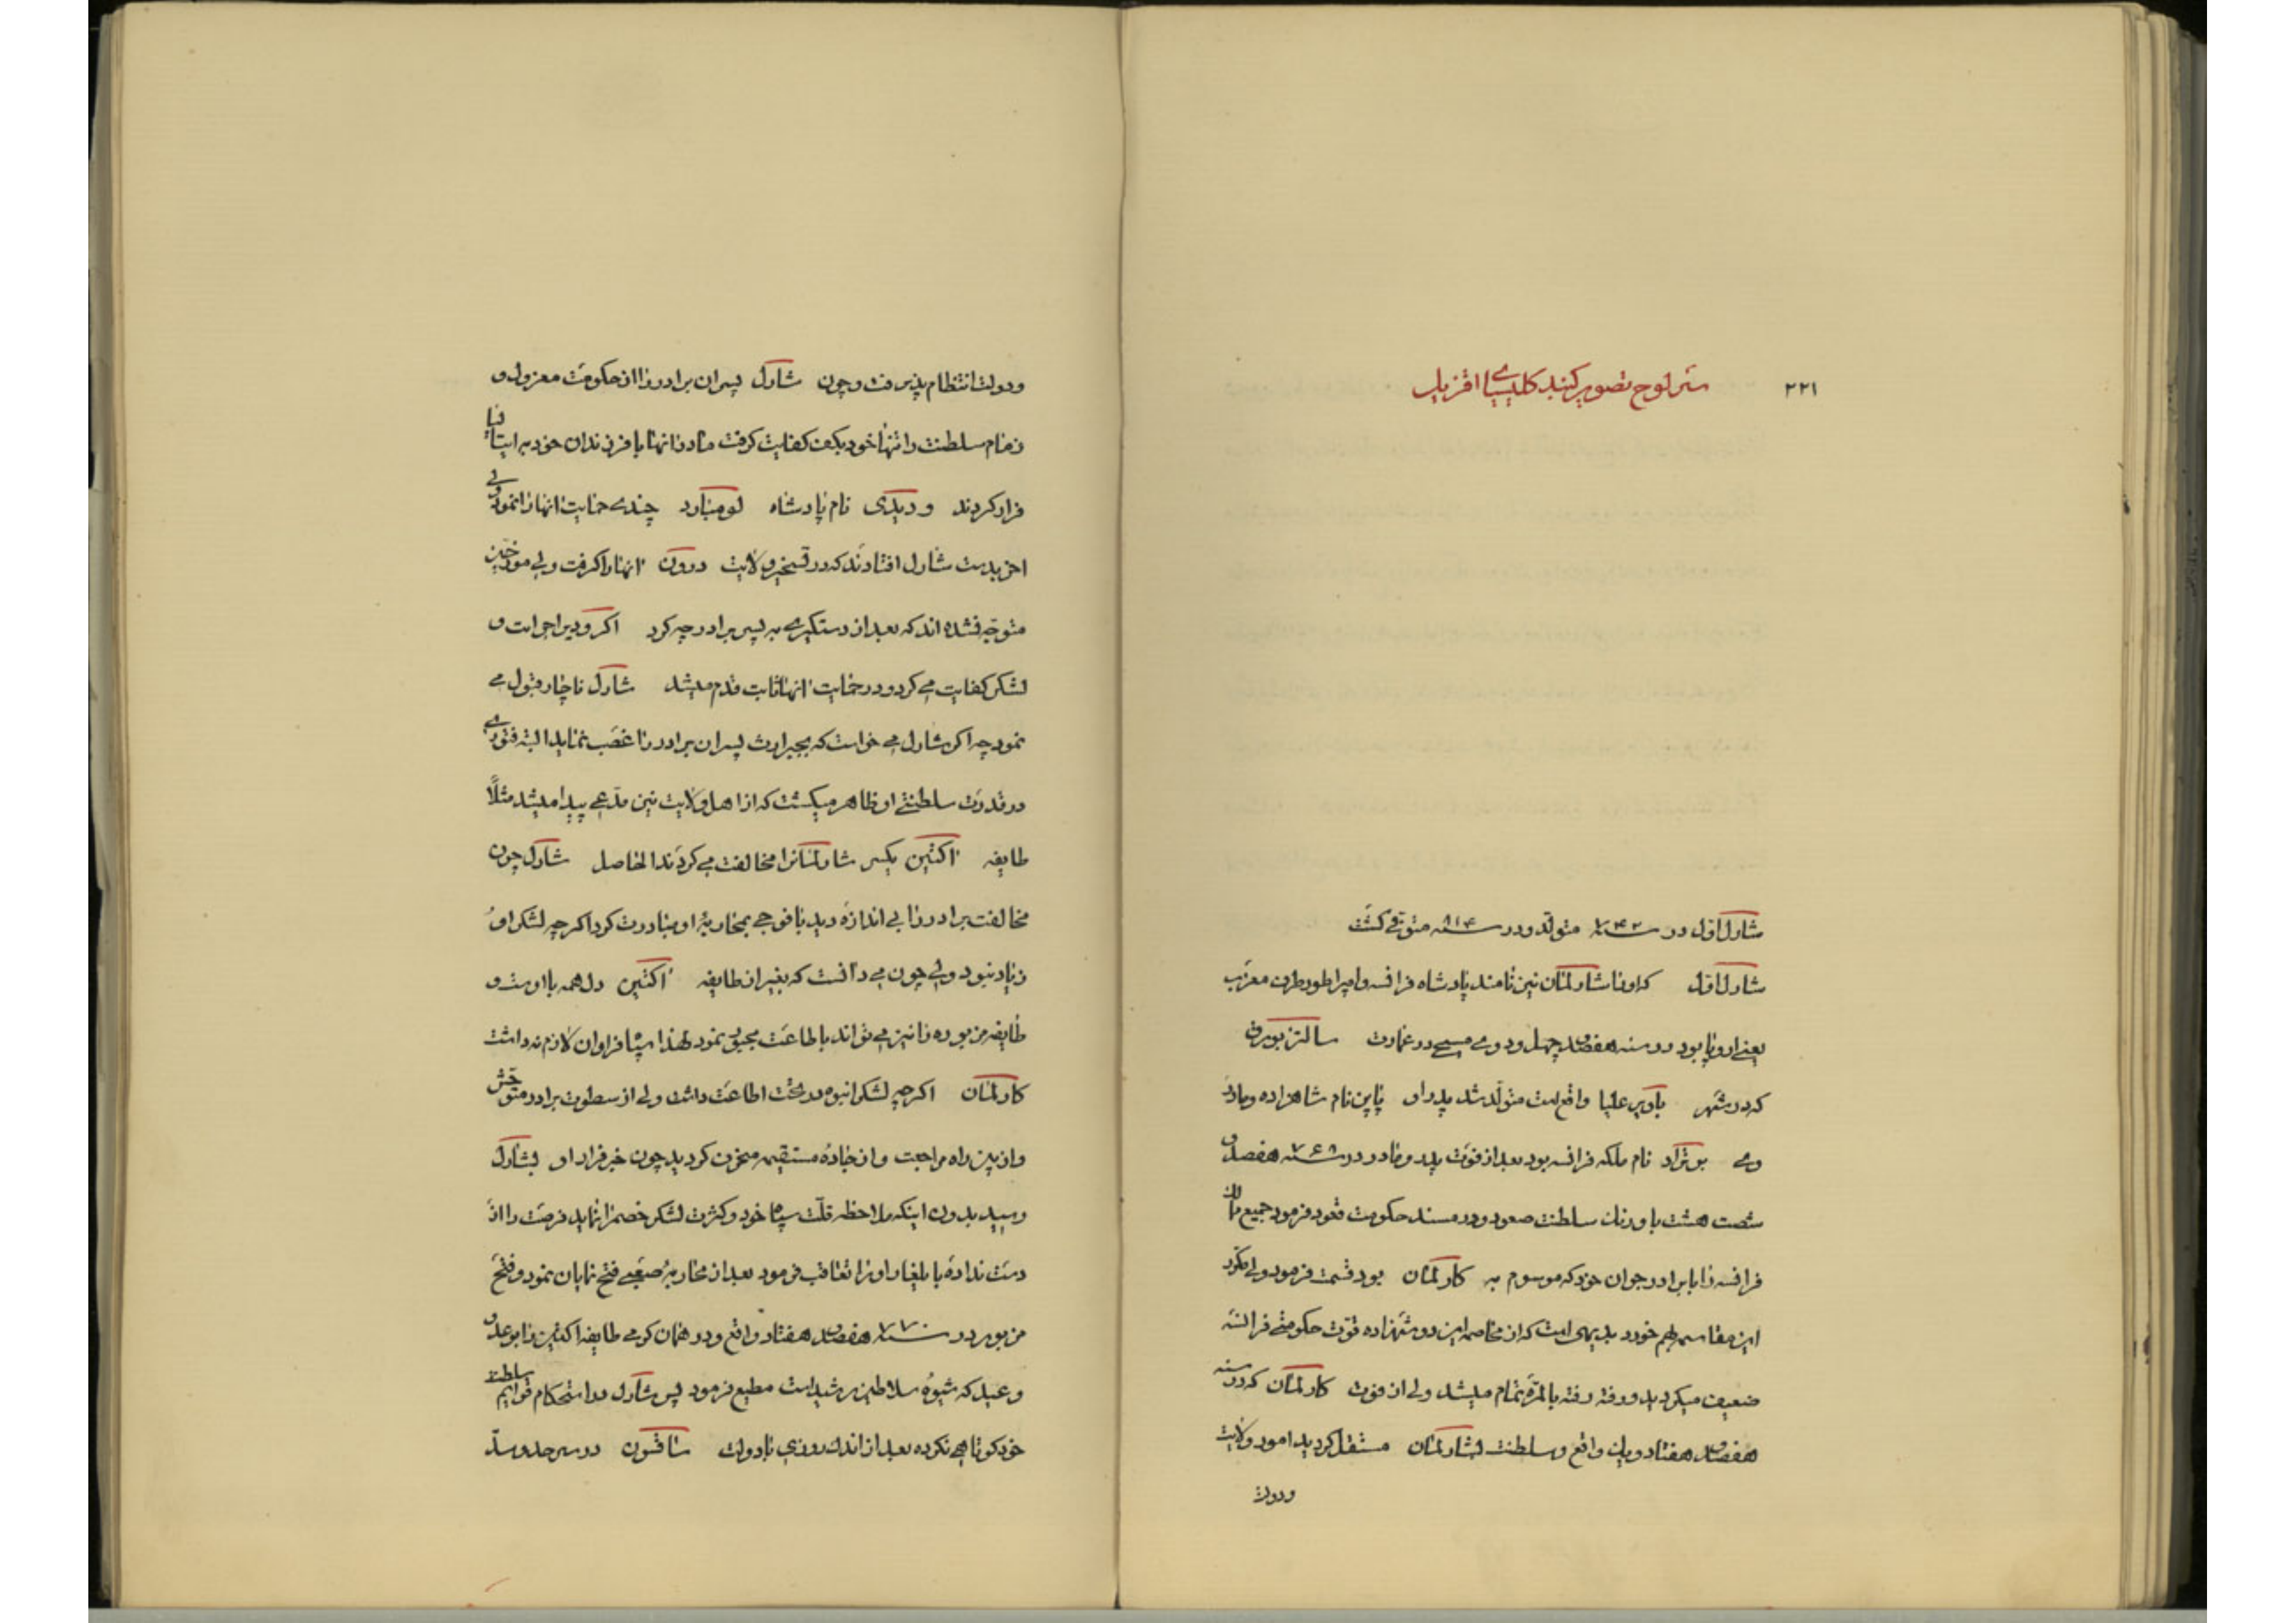 ۲۲۱
سرلوح تصویر کنید کلیسیای اقزیل
شارل اول در سنه ۷۴۲ متولد و در سنه ۸۱۴ متوفی گشت
شارل اول که او را شارلمان نیز نامند پادشاه فرانسه و امپراطور طرف مغرب
یعنی اروپا بود در سنه هفتصد چهل و دومی مسیحی در عمارت سالتزبورق
که در شهر باویر علیا واقع است متولد شد پدر او پاپن نام شاهزاده و مادر
وی برتراد نام ملکه فرانسه بود بعد از فوت پدر و مادر در سنه ۷۶۸ هفصد و
شصت هشت باورنك سلطنت صعود و در مسند حکومت قعود فرمود جمیع ممالك
فرانسه را با برادر جوان خود که موسوم به کارلمان بود قسمت فرمود ولی مکرد
این مقاسمه بهم خورد بدیهی است که از مخاصمه این دو شهزاده قوت حکومتی فرانسه
ضعیف میکردید و رفته رفته بالمره تمام میشد ولی از فوت کارلمان که در سنه
هفصد هفتاد و یك واقع و سلطنت بشارلمان مستقل کردید امور ولایت
ودولت
ودولت انتظام پذیرفت و چون شارل پسران برادر را از حکومت معزول و
زمام سلطنت را تنها خود بکف کفایت کرفت مادر انها با فرزندان خود به ایتالیا
فرار کردند و دیدی نام پادشاه لومبارد چندی حمایت انها را نمود ولی
اخر بدست شارل افتادند که در تسخیر ولایت درون انها را کرفت ولی مورخین
متوجه نشده اند که بعد از دستکیری به پسر برادر چه کرد اکر ودیر اجرات و
لشکر کفایت می کرد و در حمایت انها ثابت قدم میشد شارل ناچار قبول می
نمود چه اکر شارل می خواست که بجبر ارث پسران برادر را غصب نماید البته فتوری
در قدرت سلطنتی او ظاهر میکشت که از اهل ولایت نیز مدعی پیدا میشد مثلاً
طایفه اکتین یکسر شارلمانرا مخالفت می کردند الحاصل شارل چون
مخالفت برادر را بی اندازه دید با فوجی بمحاربهٔ او مبادرت کرد اکرچه لشکر او
زیاد نبود ولی چون می دانست که بغیر از طایفه اکتین دل همه با اوست و
طایفه مزبوره را نیز می تواند باطاعت مجبور نمود لهذا سپاه فراوان لازم نداشت
کارلمان اکرچه لشکر انبوه در تحت اطاعت داشت ولی از سطوت برادر متوحش
و از بین راه مراجعت و از جادهٔ مستقیم منحرف کردید چون خبر فرار او بشارل
رسید بدون اینکه ملاحظه قلت سپاه خود و کثرت لشکر خصم را نماید فرصت را از
دست نداده با یلغار او را تعاقب فرمود بعد از محاربهٔ صعبی فتح نمایان نمود و فتح
مزبور در سنه ۷۷۰ هفصد هفتاد واقع و در همان کرمی طایفه اکتین را بوعد و
وعید که شیوهٔ سلاطین رشید است مطیع فرمود پس شارل در استحکام قوایم سلطنت
خود کوتاهی نکرده بعد از اندك روزی با دولت ساقسون در سر حد و سد